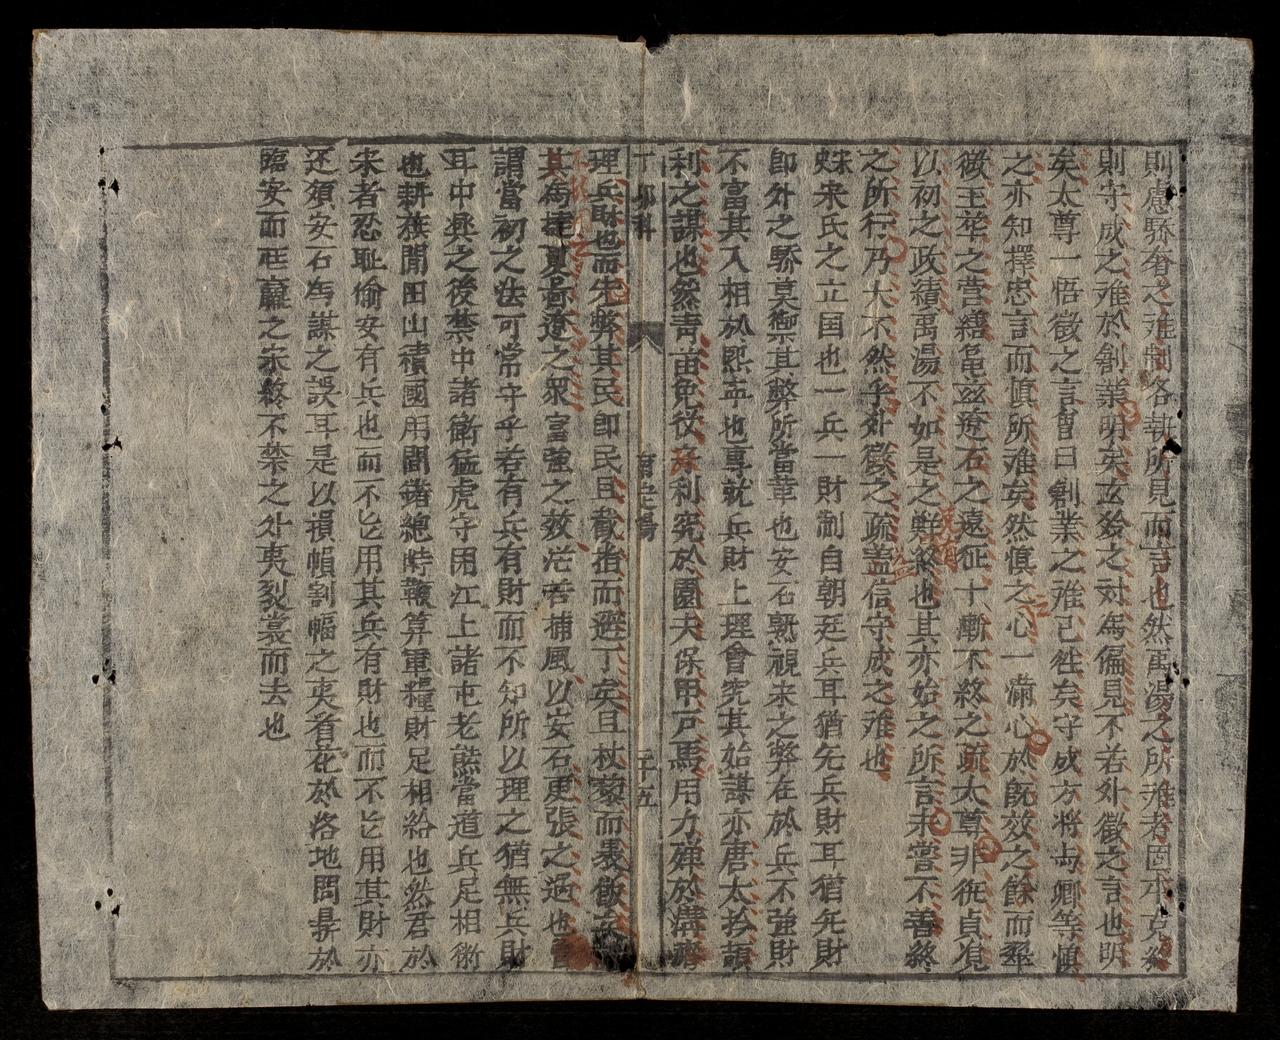 則慮驕奢之难制各執所見而言也然禹湯之所难者固不克終
則守成之难於創業明矣玄齡之对為偏見不若外徵之言也明
矣太尊一悟徵之言曾曰創業之难已徃矣守成方将与卿等慎
之亦知擇忠言而慎所难矣然慎之心一滿心於既效之餘而翠
徵玉華之营繕龟玆遼石之遠征十漸不終之疏太尊非徃貞观
以初之政績禹湯不如是之鮮終也其亦始之所言未曾不善終
之所行乃大不然乎外徵之疏盖信守成之难也
宋氏之立国也一兵一財制自朝廷兵耳猶先兵財耳猶先財
即外之驕莫御其弊所當革也安石熟視宋之弊在於兵不強財
不富其入相於熙寧也專就兵財上理會究其始謀亦唐太拾頡
利之謀也然青苗免役民利究於園夫保甲戸馬用力殫於溝
理兵財也而先弊其民即民且截指而避丁矣且杖藜而裹飯矣
其為捷夏吞遼之眾富強之效茫若捕風以安石更張之過也
謂當初之法可常守乎若有兵有財而不知所以理之猶無兵財
耳中興之後禁中諸衛猛虎守困江上諸屯老熊當道兵足相衛
也耕蓑閒田山積國用間鍤絶時鞭算軍糧財足相給也然君於
宋者忍耻偷安有兵也而不乞用其兵有財也而不乞用其財亦
还須安石為謀之誤耳是以損幀割幅之夷看花於洛地問鼎於
臨安而荘蔴之宋終不禁之外夷裂裳而去也
丁卯科
二十五